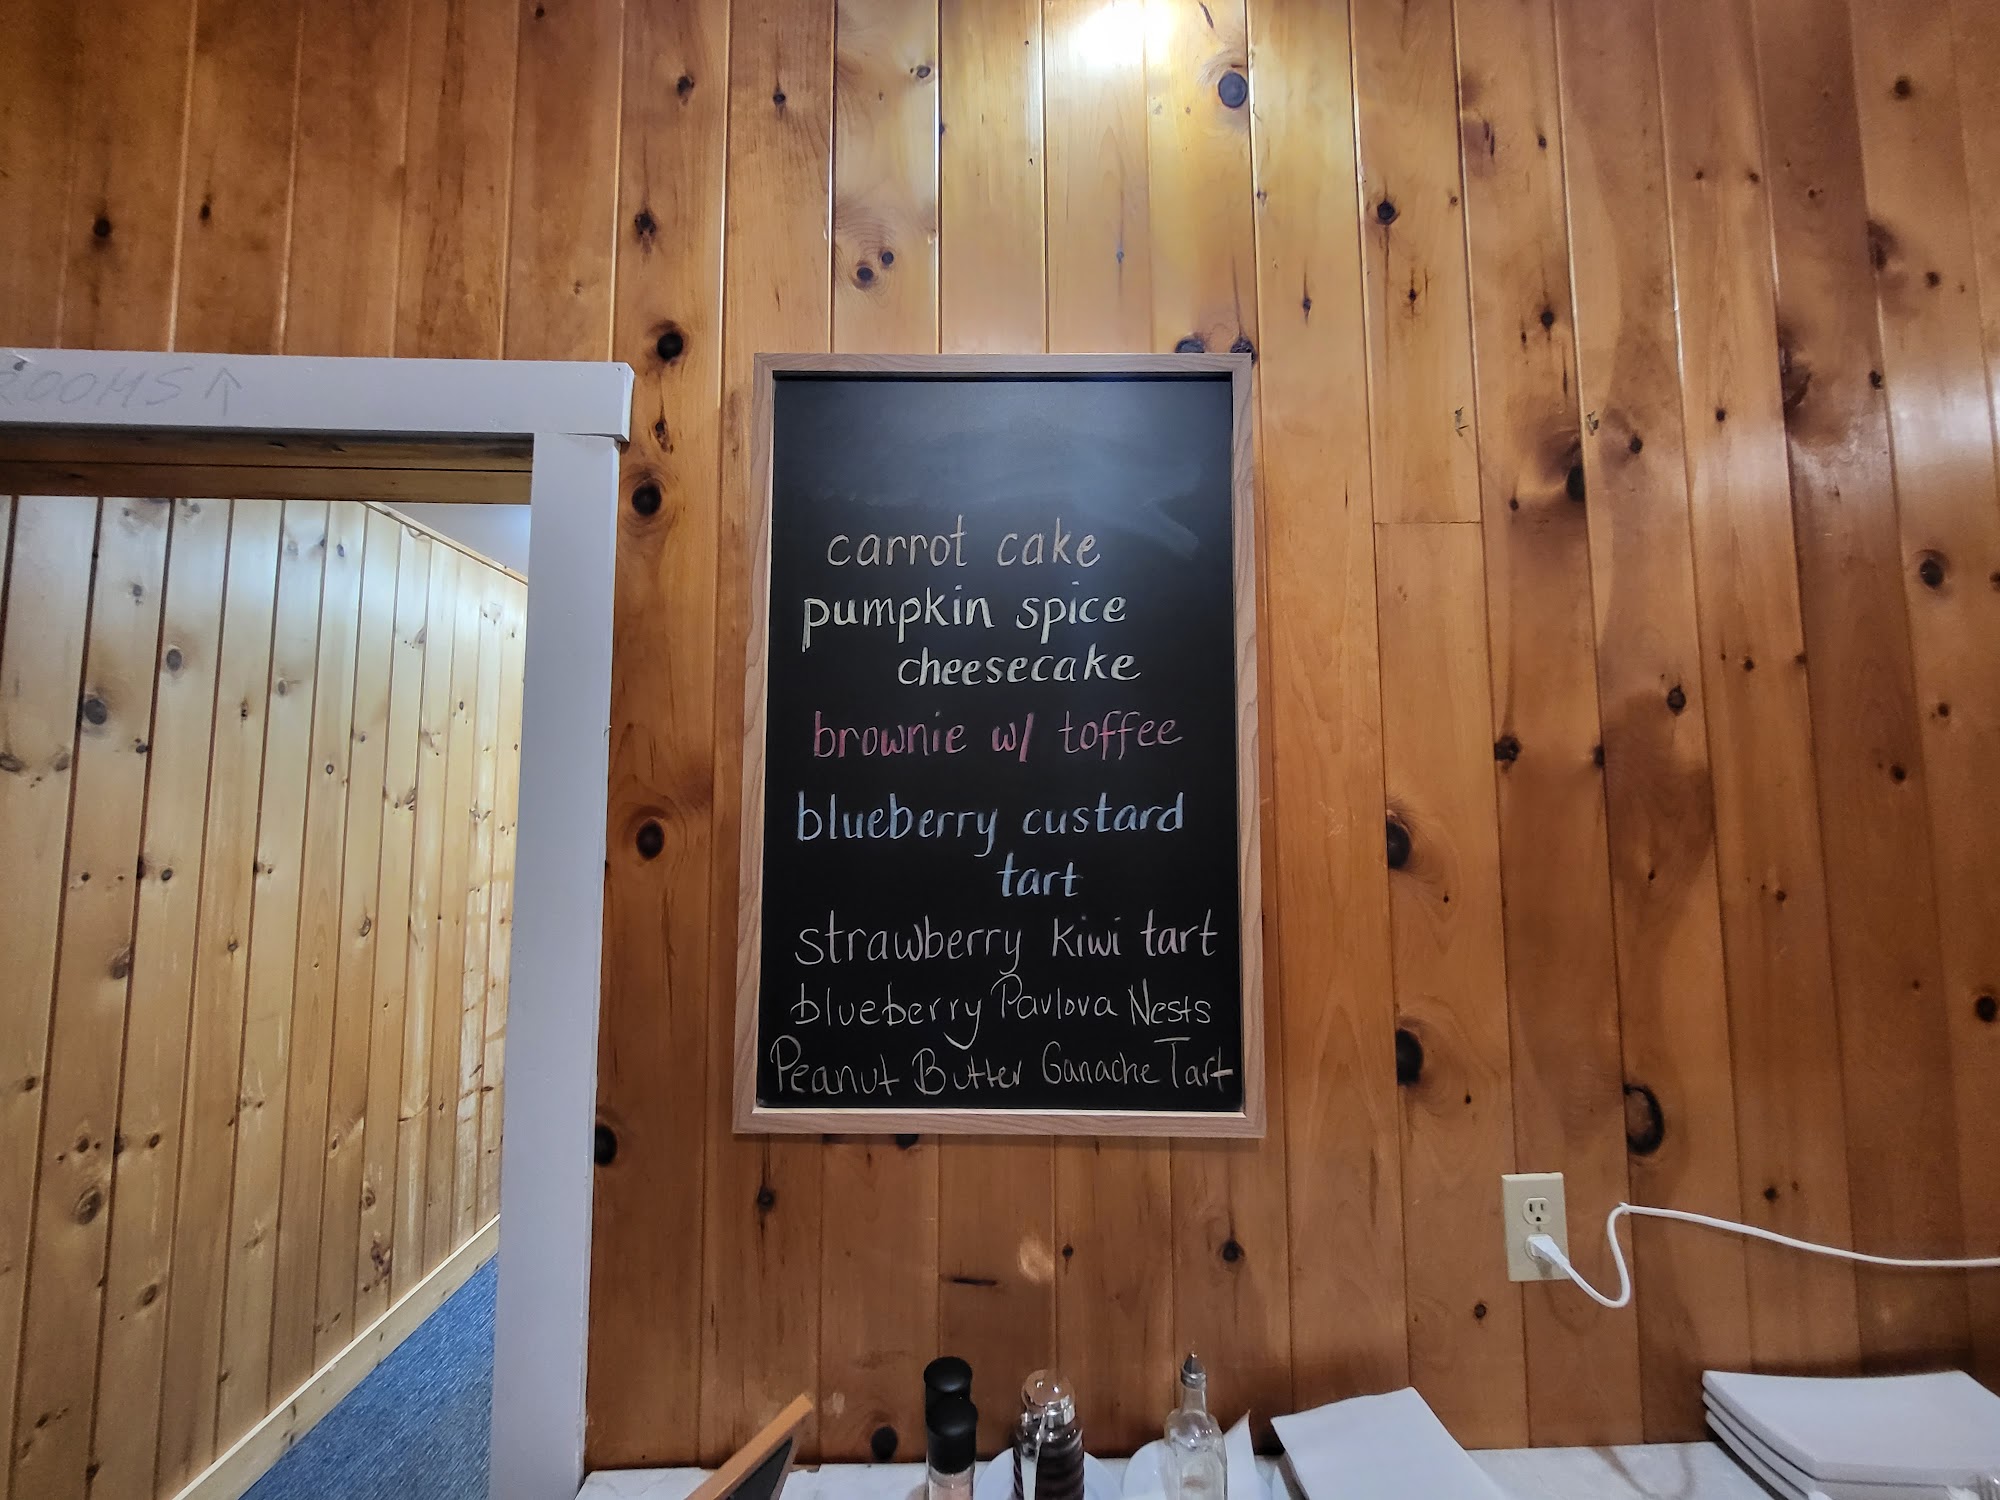 ROOMS ↑
carrot cake
pumpkin spice
cheesecake
brownie w/ toffee
blueberry custard
tart
strawberry kiwi tart
blueberry Pavlova Nests
Peanut Butter Ganache Tart